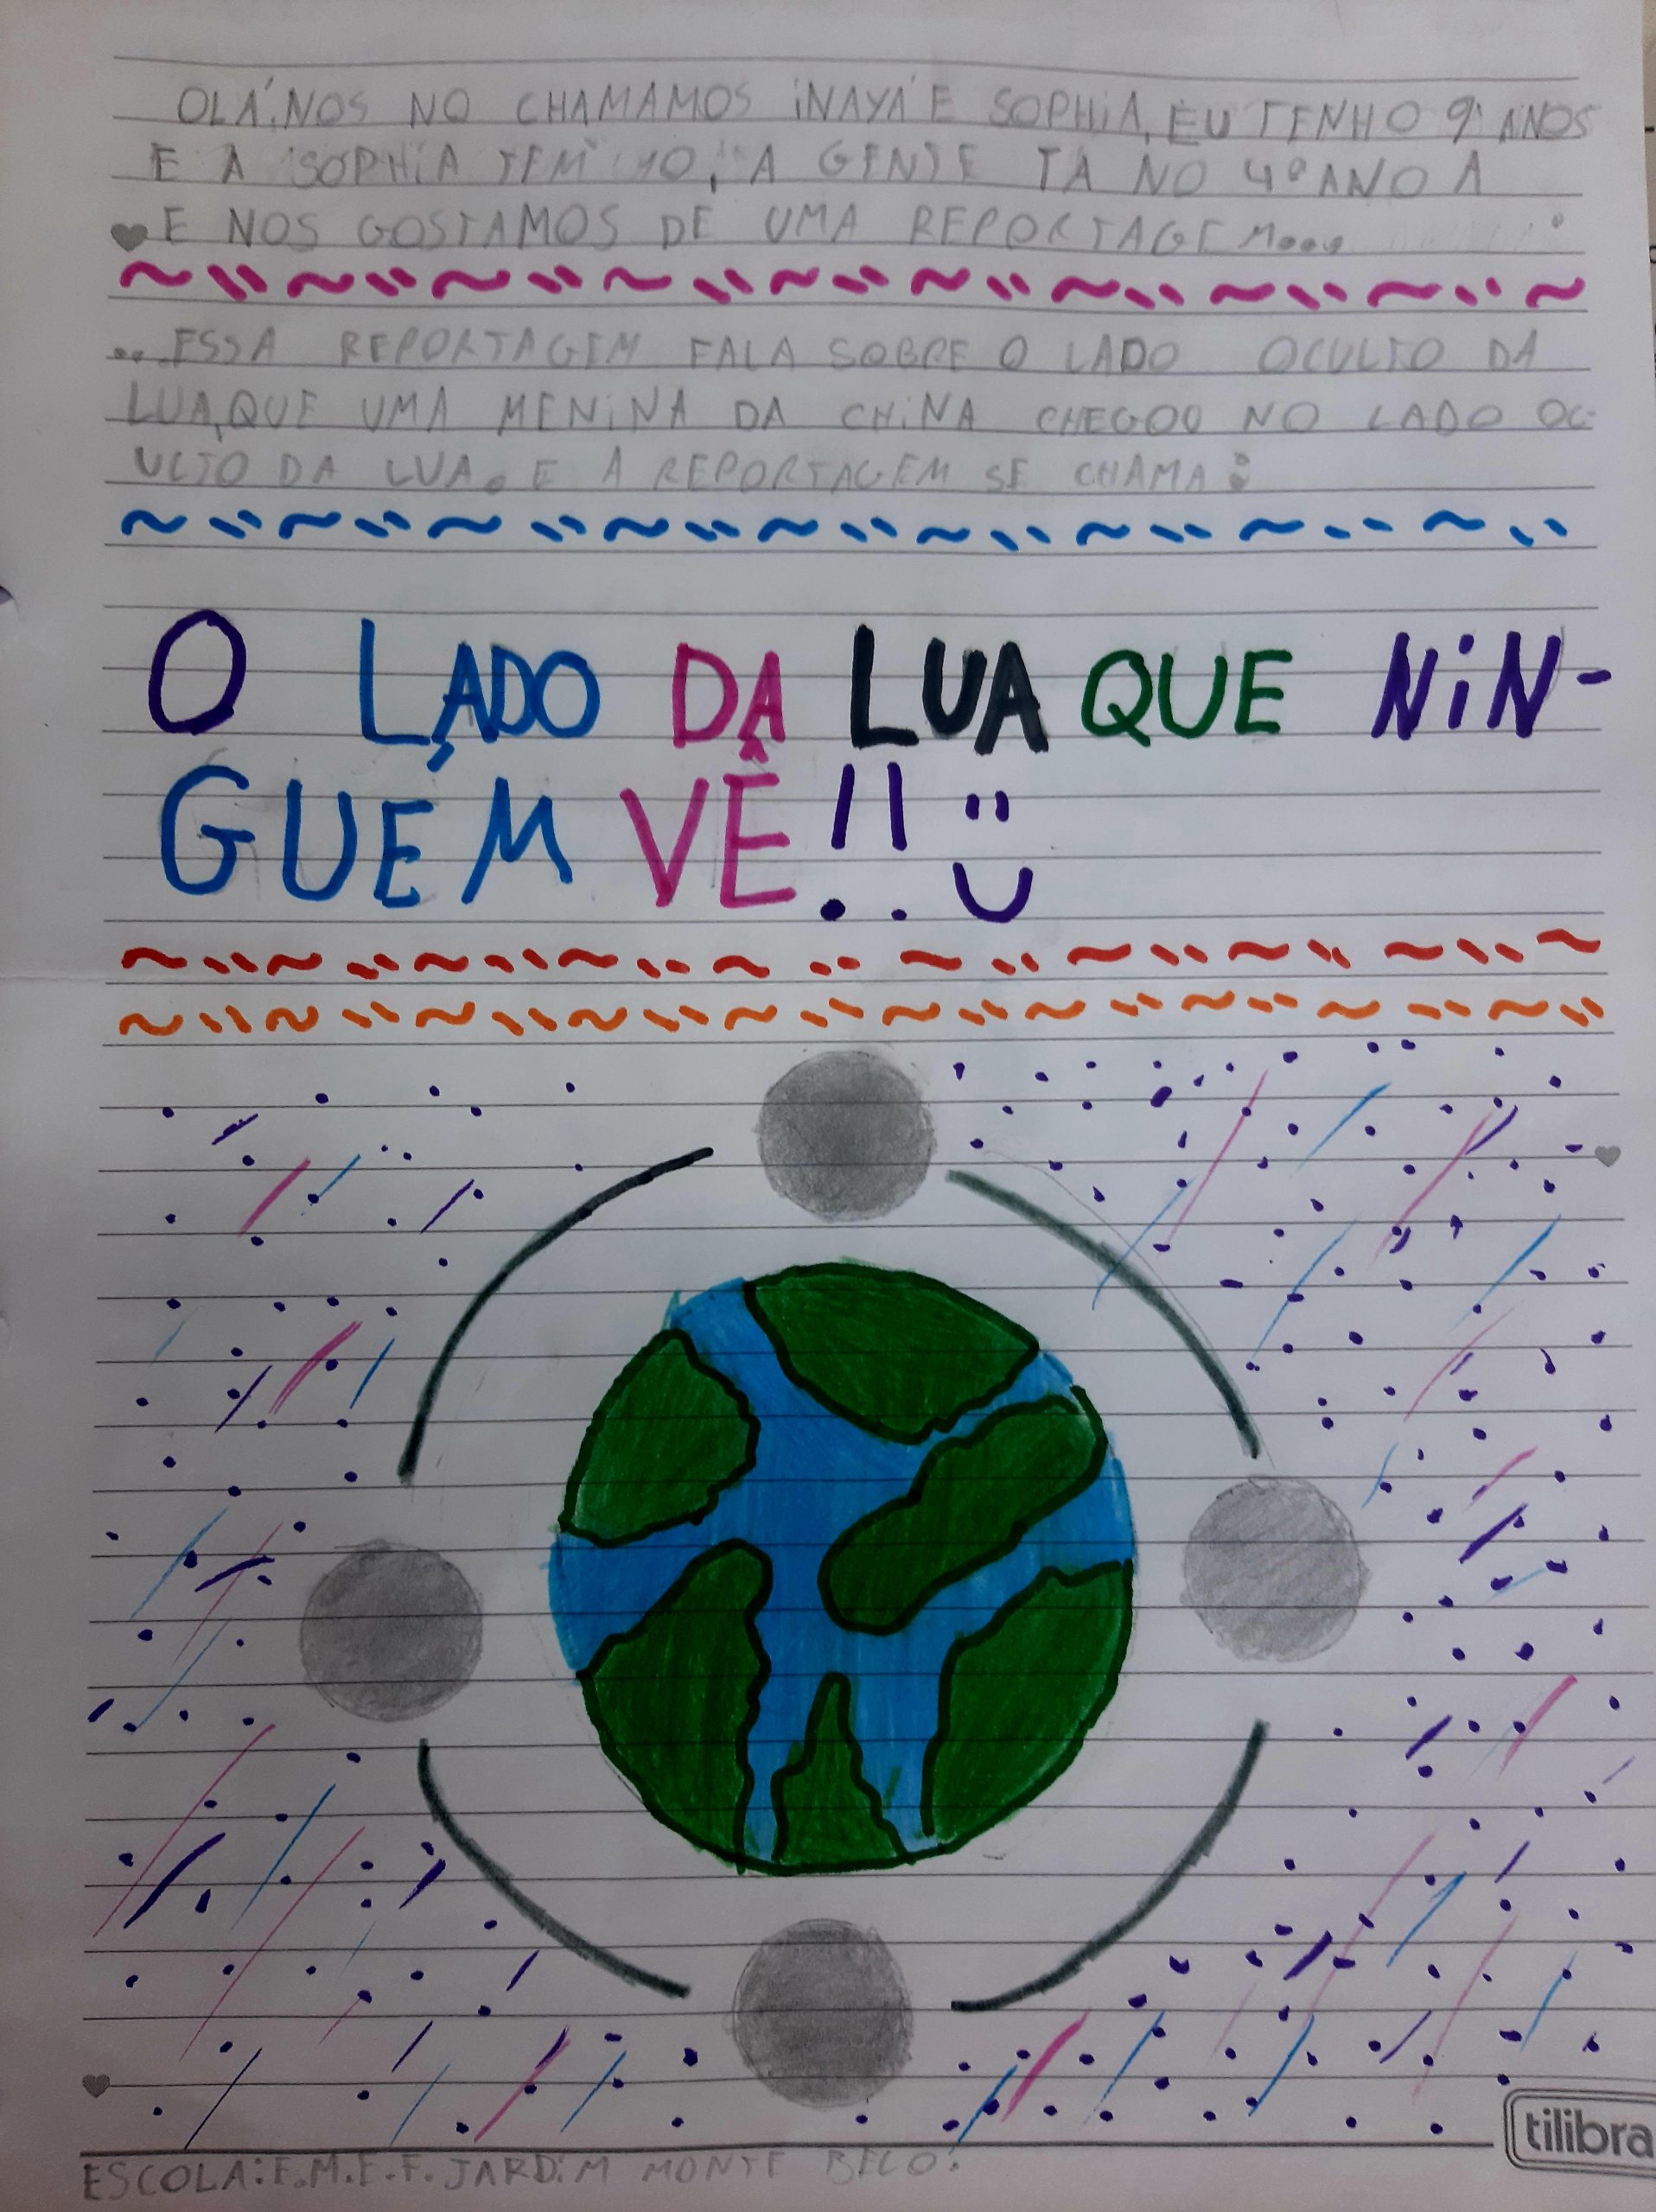 OLÁ, NOS NO CHAMAMOS INAYÁ E SOPHIA, EU TENHO 9 ANOS
E A SOPHIA TEM 10, A GENTE TA NO 4º ANO A
E NOS GOSTAMOS DE UMA REPORTAGEM...
...ESSA REPORTAGEM FALA SOBRE O LADO OCULTO DA
LUA, QUE UMA MENINA DA CHINA CHEGOU NO LADO OC-
ULTO DA LUA. E A REPORTAGEM SE CHAMA:
O LADO DA LUA QUE NIN-
GUÉM VÊ!! :)
tilibra
ESCOLA: E.M.E.F. JARDIM MONTE BELO.